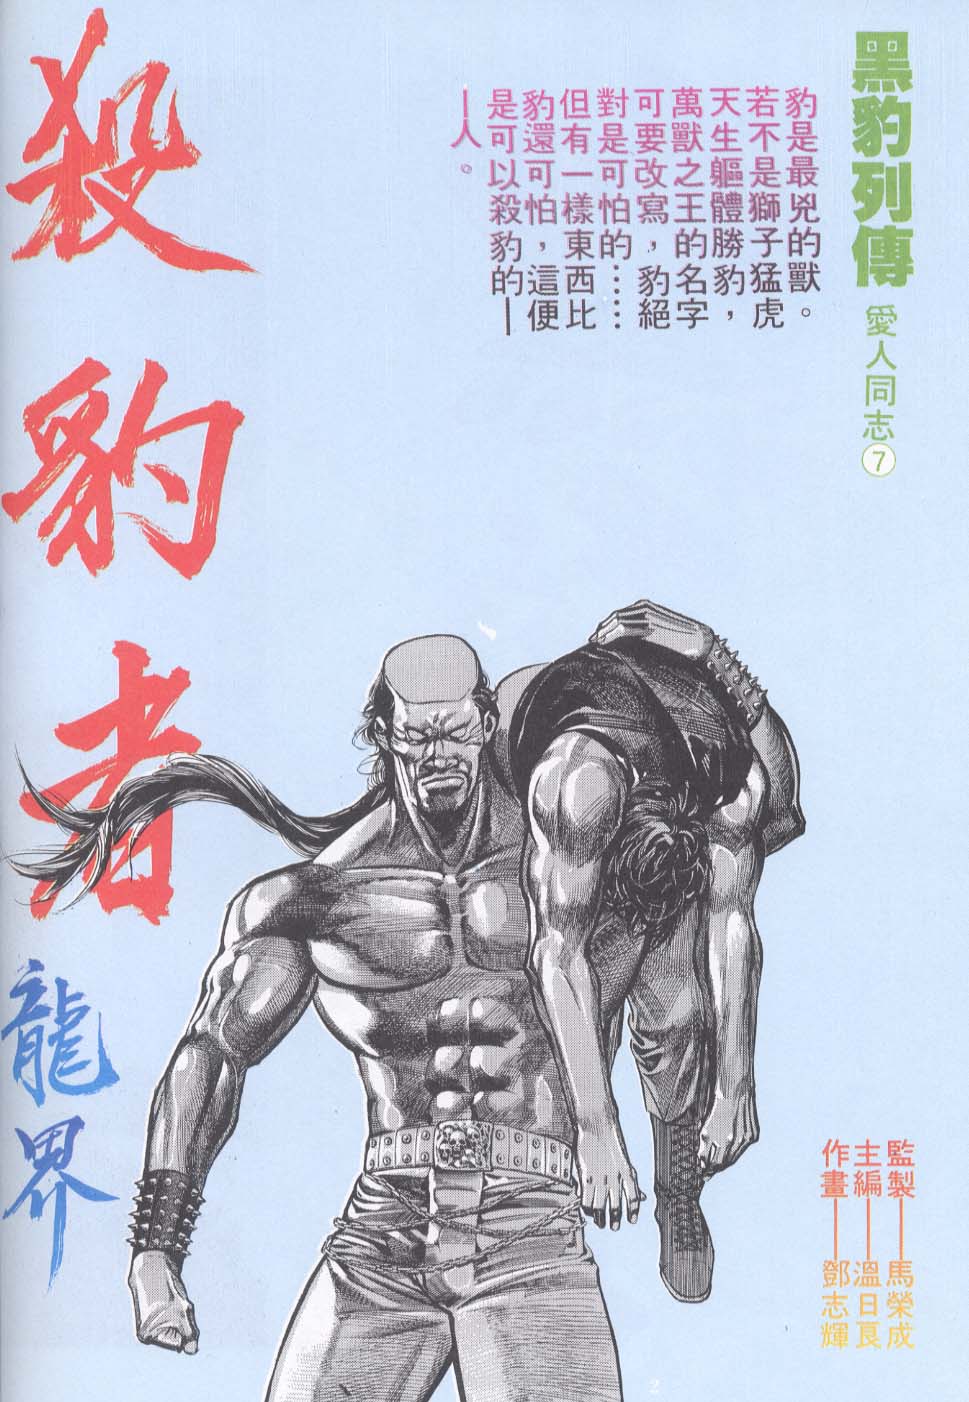 黑豹列傳
愛人同志
7
豹是最兇的獸。
若不是獅子猛虎
天生軀體勝豹，
萬獸之王的名字
可要改寫，豹絕
對是可怕的……
但有一樣東西比
豹還可怕，這便
是可以殺豹的—
—人。
殺豹者
龍界
監製——馬榮成
主編——溫日良
作畫——鄧志輝
2